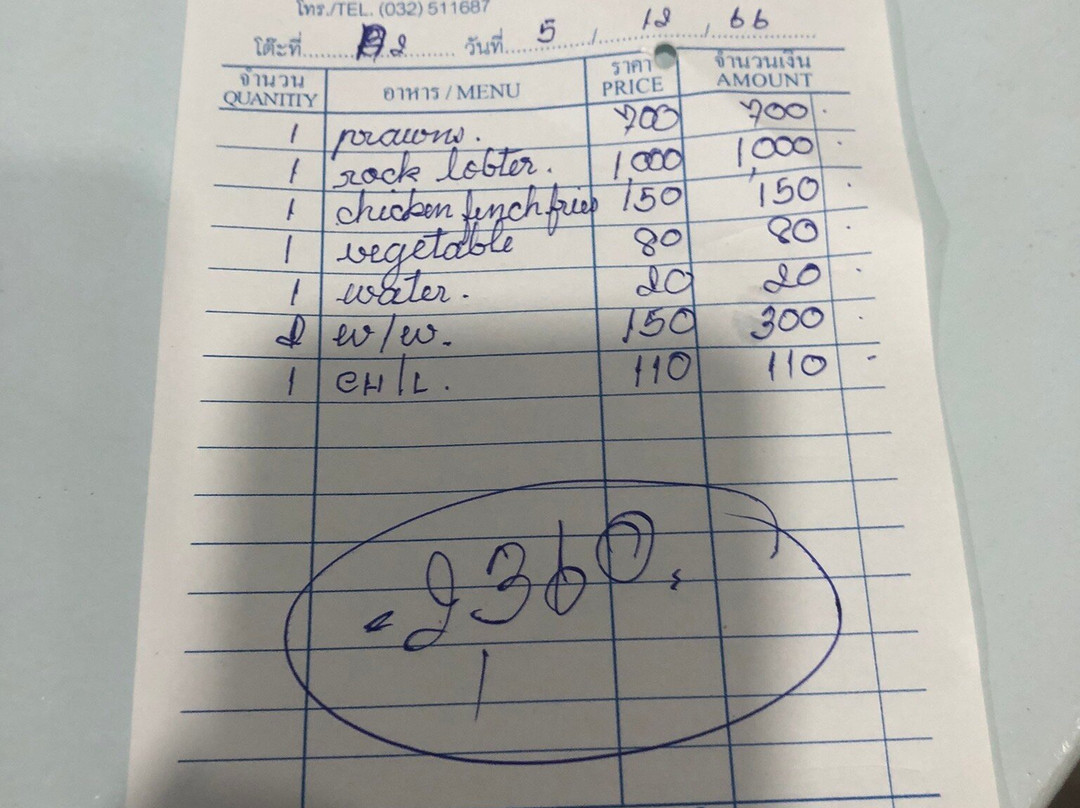 โทร./TEL. (032) 511687
โต๊ะที่ 2 วันที่ 5 / 12 / 66
จำนวน อาหาร / MENU ราคา จำนวนเงิน
QUANTITY PRICE AMOUNT
1 prawns. 700 700
1 rock lobter. 1,000 1,000
1 chicken fench fries 150 150
1 vegetable 80 80
1 water. 20 20
2 w/w. 150 300
1 CH/L. 110 110
2,360